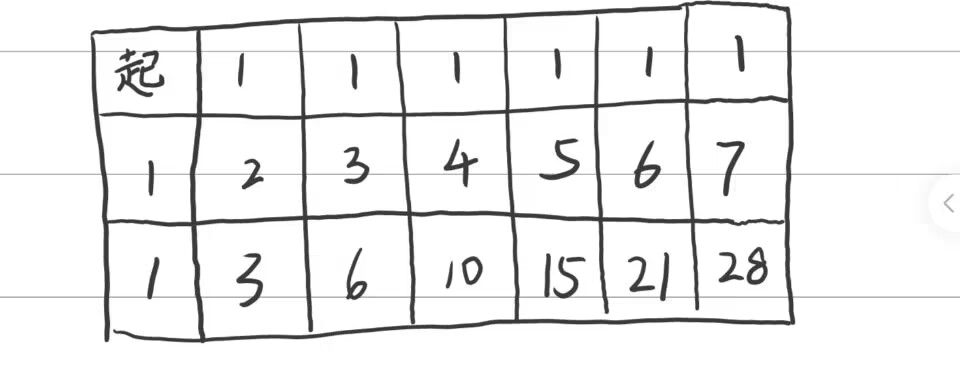 起 1 1 1 1 1 1
1 2 3 4 5 6 7
1 3 6 10 15 21 28